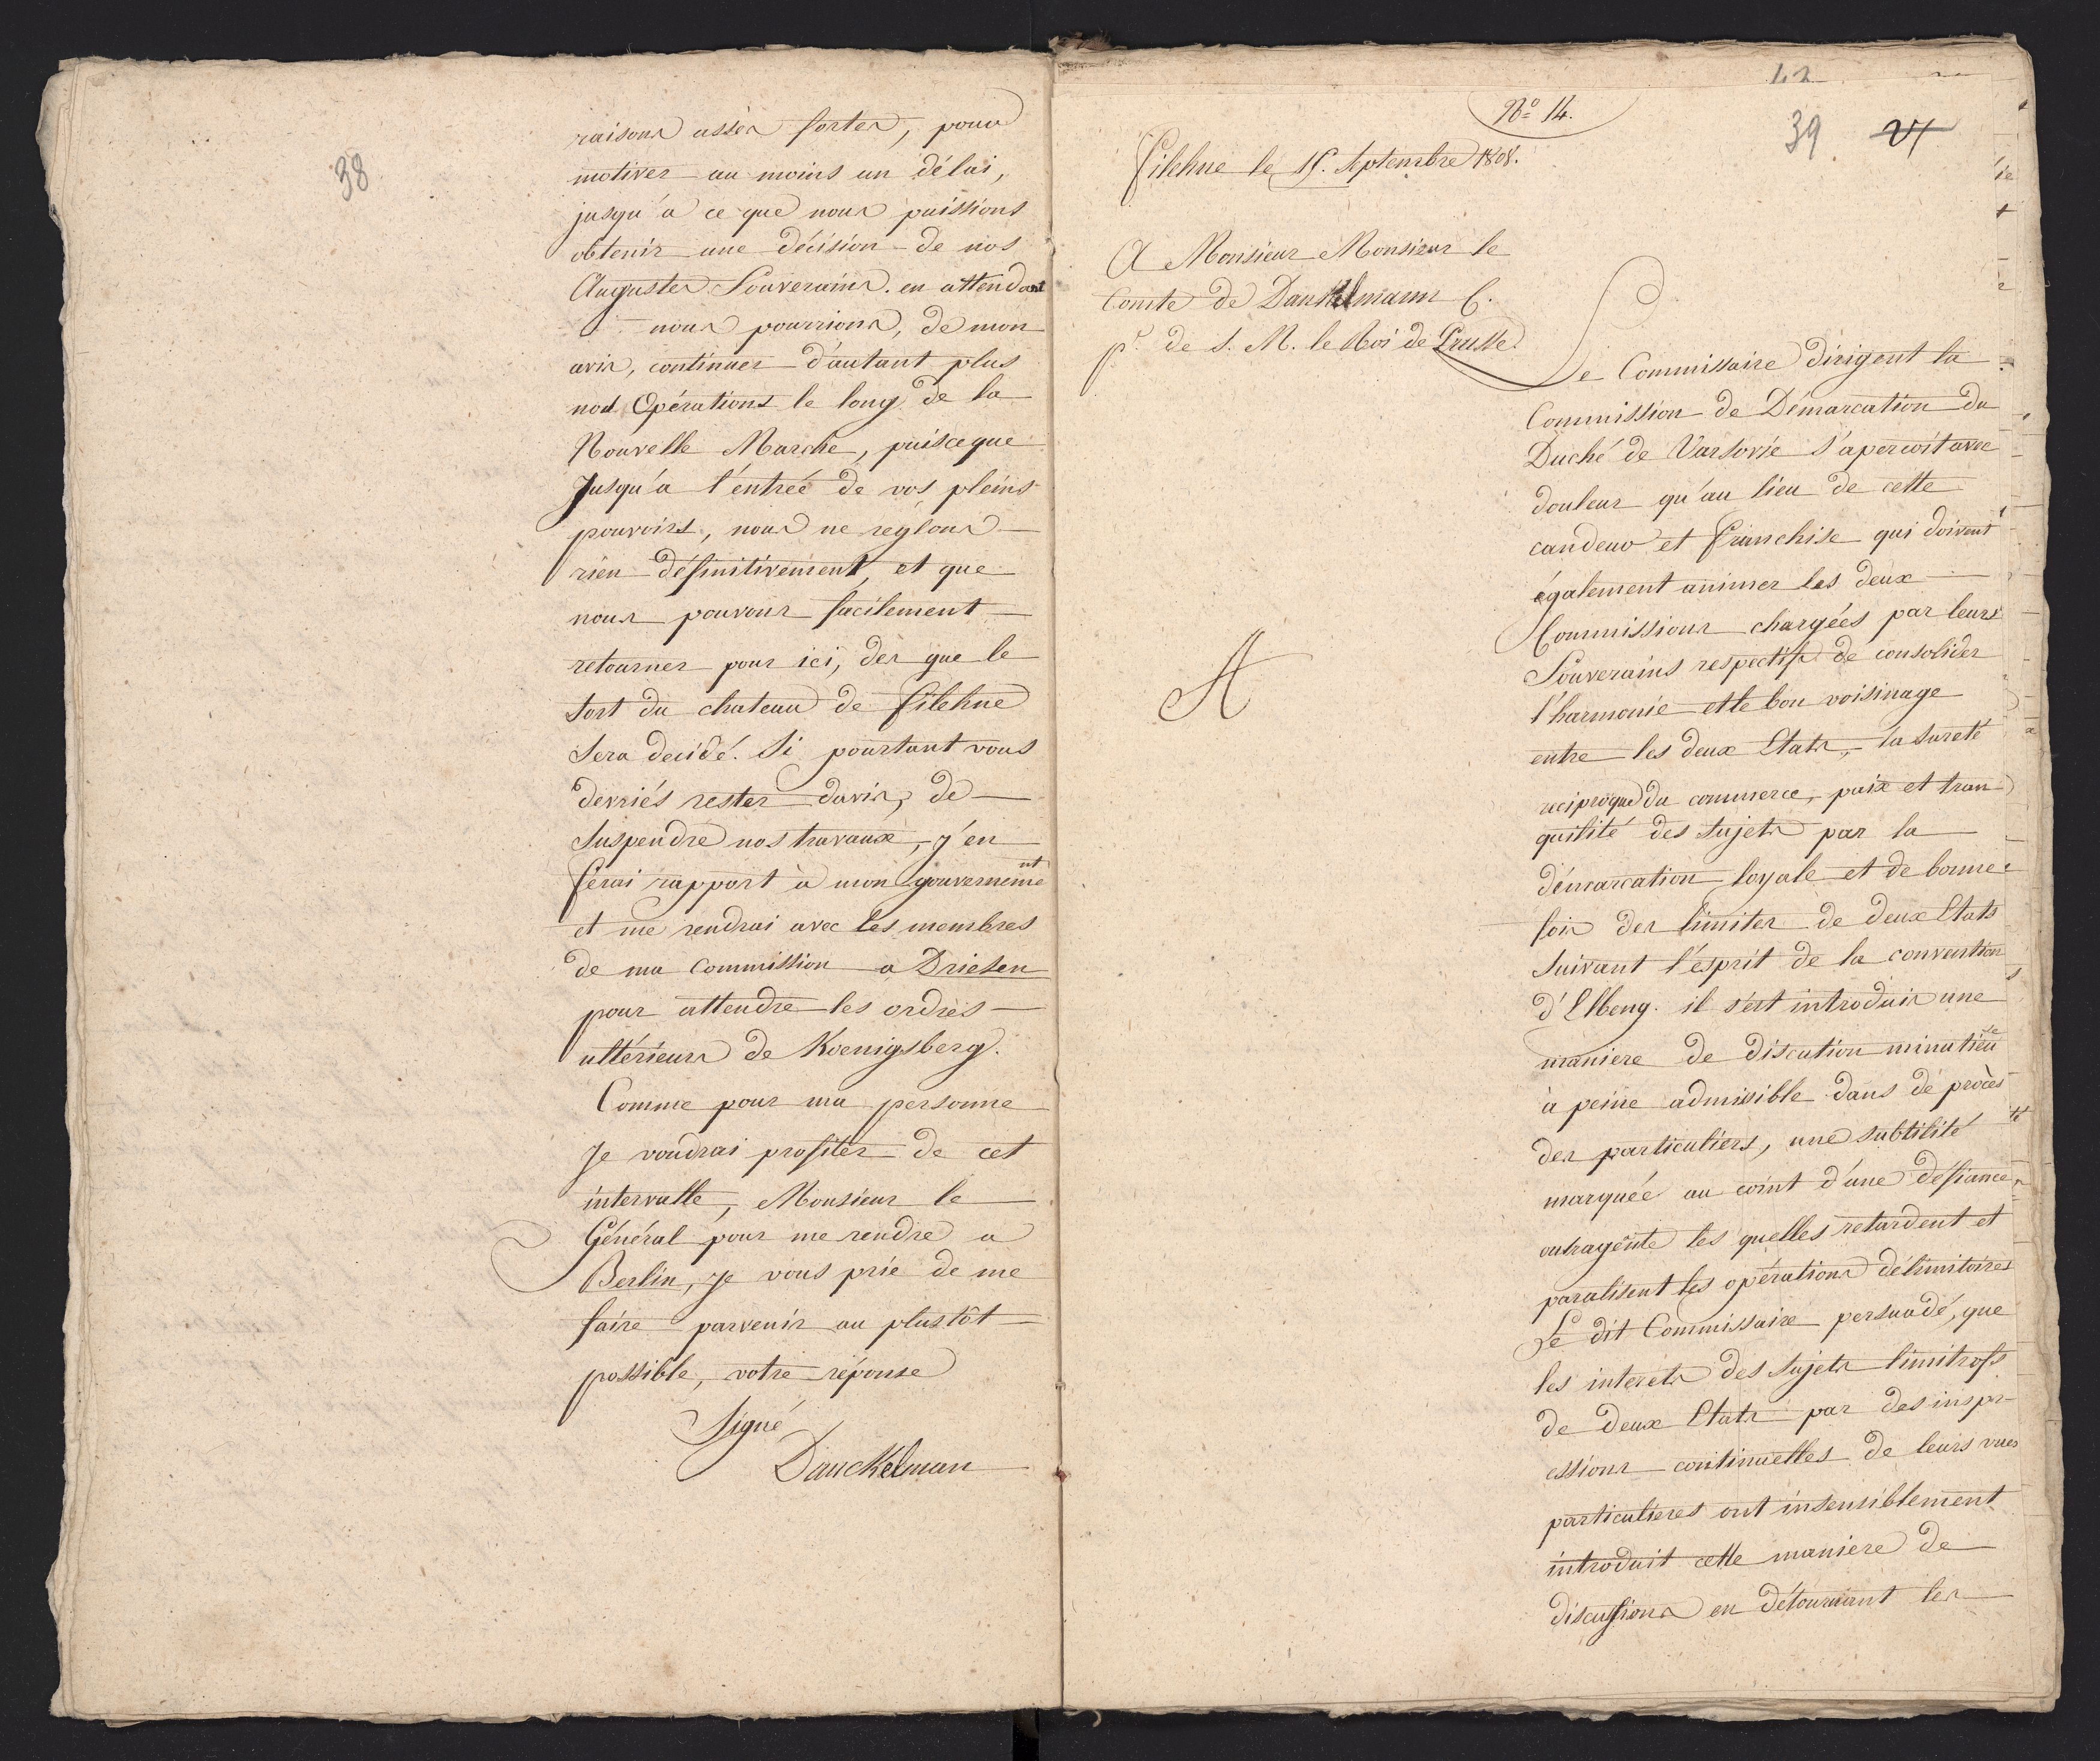 38
raisons assés fortes, pour
motiver au moins un délai,
jusqu'a ce que nous puissions
obtenir une décision de nos
Augustes Souverains. en attendant
nous pourrions, de mon
avis, continuer d'autant plus
nos Opérations le long de la
Nouvelle Marche, puisceque
Jusqu'a l'entreé de vos pleins
pouvoirs, nous ne reglons
rien définitivement, et que
nous pouvons facilement
retourner pour ici, des que le
sort du chateau de Filehne
sera decidé. Si pourtant vous
devriés rester davis, de
Suspendre nos travaux, j'en
ferai rapport à mon gouvernement
et me rendrai avec les membres
de ma Commission a Driesen
pour attendre les ordres
ultérieurs de Koenigsberg.
Comme pour ma personne
Je voudrai profiter de cet
intervalle, Monsieur le
Général pour me rendre a
Berlin, je vous prie de me
faire parvenir au plustôt
possible, votre réponse
Signé
Danckelman
42
No 14.
39
Filehne le 15. Septembre 1808.
A Monsieur Monsieur le
Comte de Dankelmann C.
pr. de S. M. le Roi de Prusse
A
Le Commissaire dirigent la
Commission de Démarcation du
Duché de Varsovie s'apercoit avec
douleur qu'au lieu de cette
candeur et franchise qui doivent
également animer les deux
Commissions chargées par leurs
Souverains respectifs de consolider
l'harmonie et le bon voisinage
entre les deux Etats, la sureté
reciproque du commerce, paix et tran
quilité des Sujets par la
démarcation loyale et de bonne
foix des limites de deux Etats
Suivant l'esprit de la convention
d'Elbeng. il s'est introduis une
maniere de discution minutieuse
à peine admissible dans de procès
des particuliers, une subtilité
marquée au coint d'une défiance
outragente les quelles retardent et
paralisent les opérations délimitoires
Le dit Commissaire persuadé, que
les interets des Sujets limitrofs
de deux Etats par des inspr-
essions continuelles de leurs vues
particulieres ont insensiblement
introduit cette maniere de
discussions en détournant les